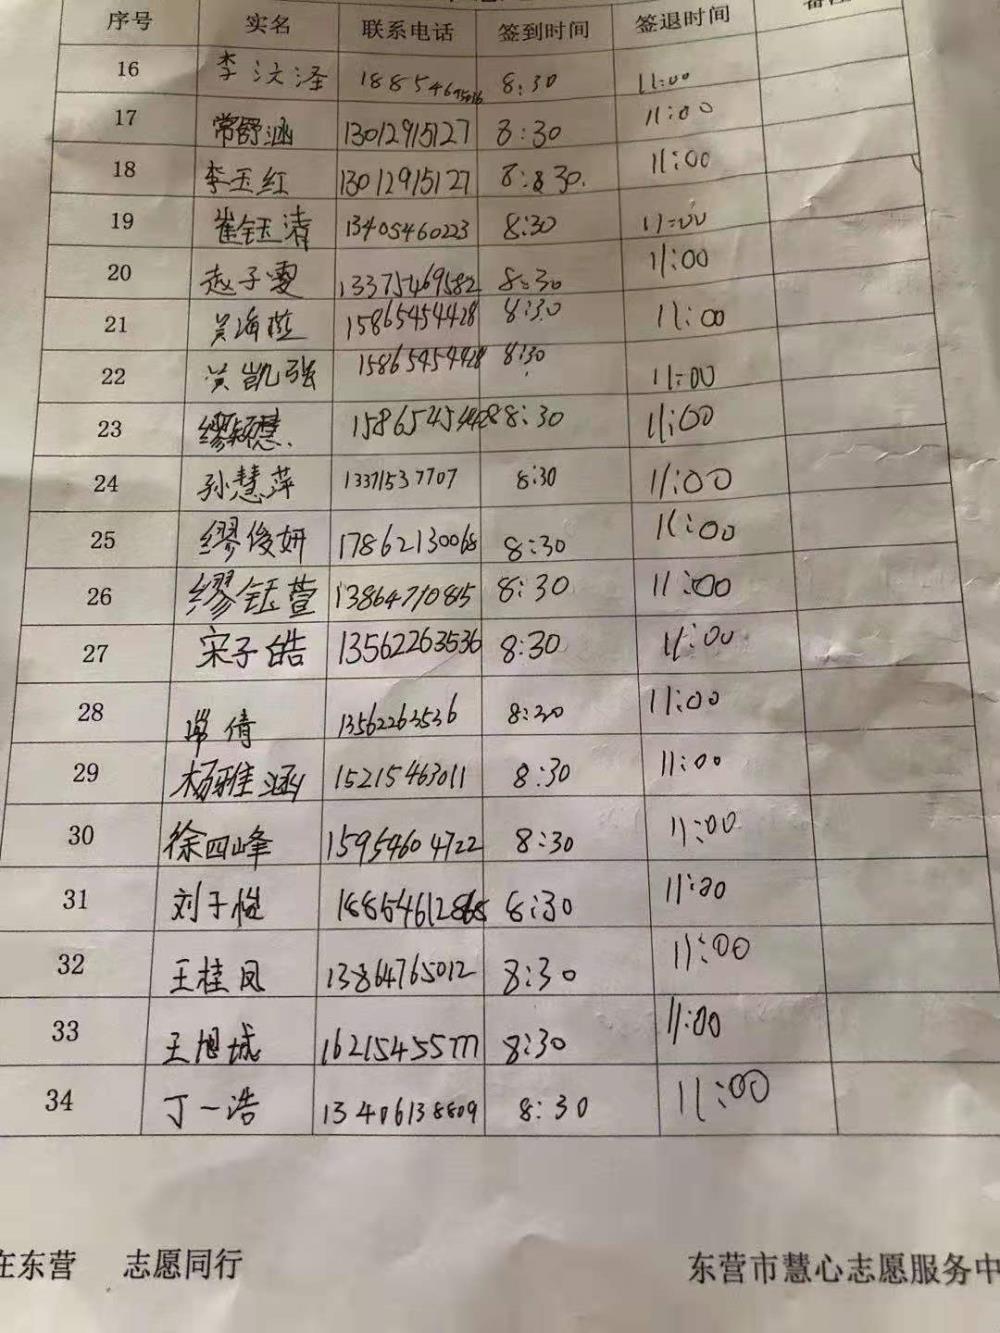 序号 实名 联系电话 签到时间 签退时间
16 李汶泽 188546 8:30 11:00
17 常舒涵 13012915127 8:30 11:00
18 李玉红 13012915127 8:8 30. 11:00
19 崔钰清 13405460223 8:30 11:00
20 赵子雯 13375469582 8:30 11:00
21 吴海燕 15865454428 8:30 11:00
22 吴凯强 15865454428 8:30 11:00
23 缪颖慧 15865454428 8:30 11:00
24 孙慧萍 13371537707 8:30 11:00
25 缪俊妍 17862130068 8:30 11:00
26 缪钰萱 13864710815 8:30 11:00
27 宋子皓 13562263536 8:30 11:00
28 常倩 13562263536 8:30 11:00
29 杨雅涵 15215463011 8:30 11:00
30 徐四峰 15954604722 8:30 11:00
31 刘子恺 18854612868 8:30 11:00
32 王桂凤 13864765012 8:30 11:00
33 王旭城 16215455777 8:30 11:00
34 丁一浩 13406138809 8:30 11:00
在东营 志愿同行 东营市慧心志愿服务中